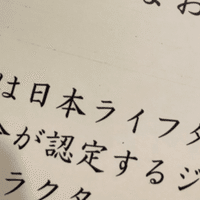 お
は日本ライフ
が認定するジ
ラクタ